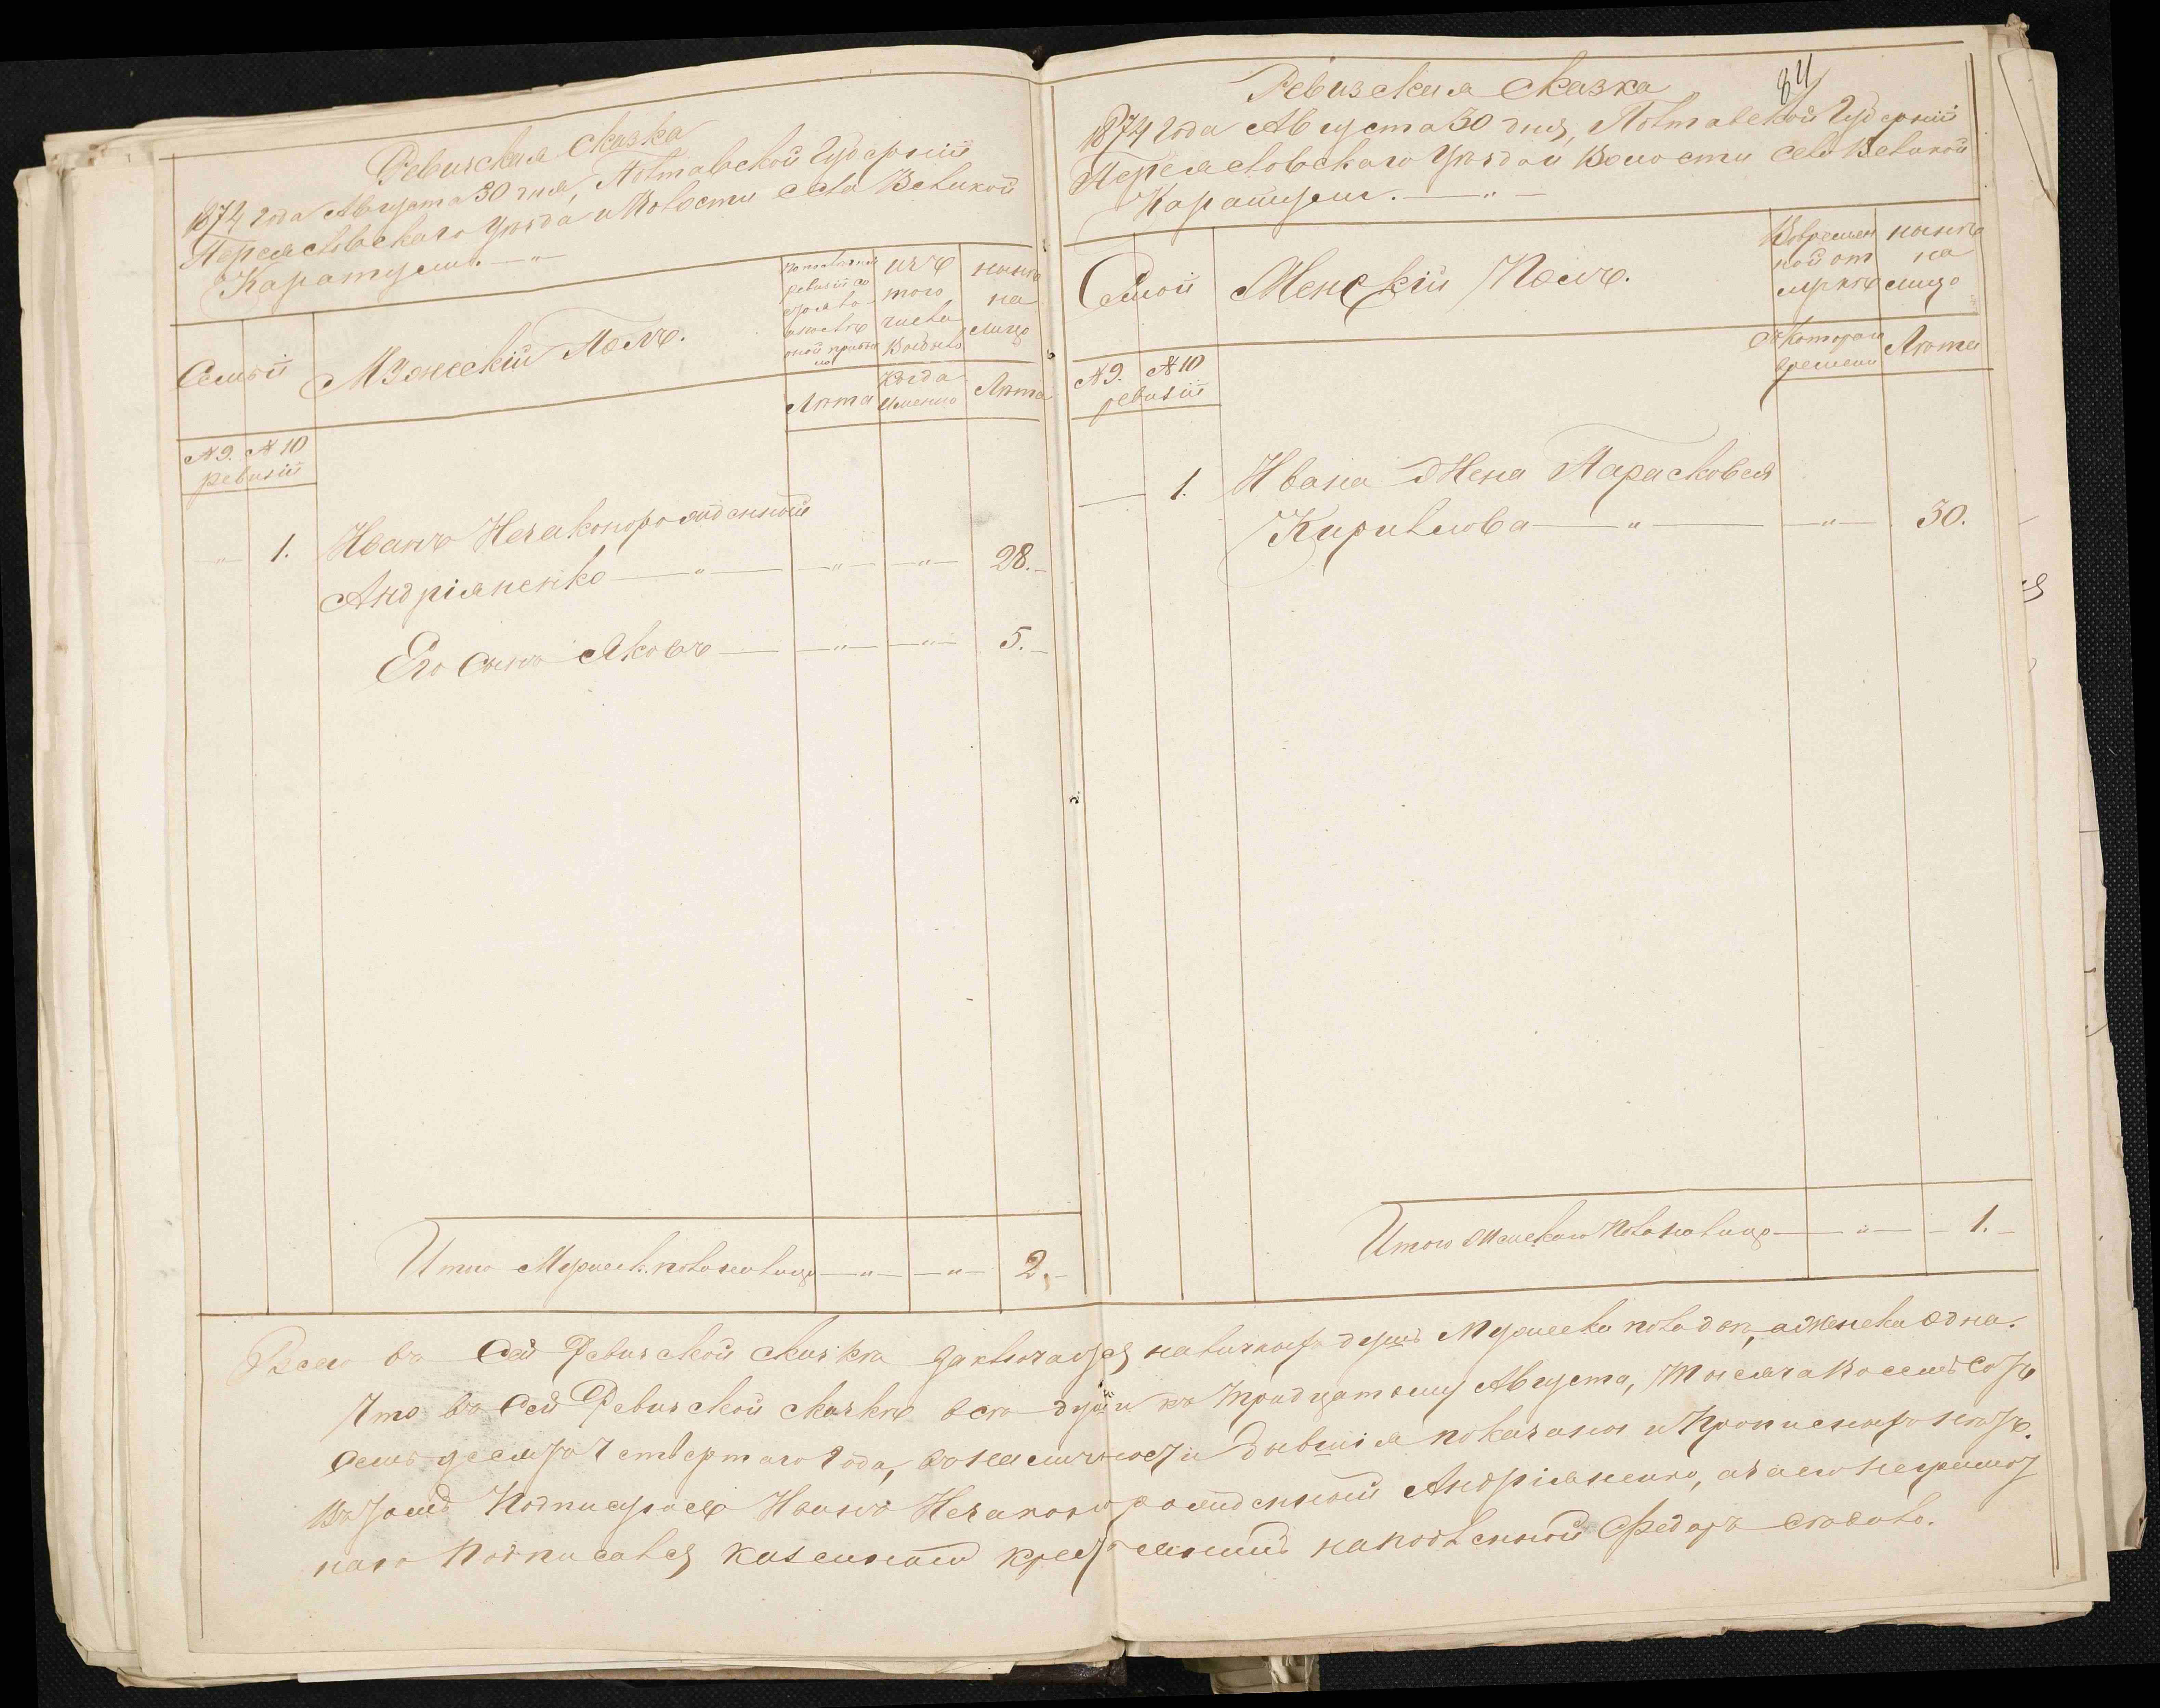 Ревизская Сказка
1874 года Августа 30 дня, Полтавской Губернии
Переяславскаго Уѣзда и Волости села Великой
Каратули. — „ —
Семьи
Мужескій Полъ.
по послѣдней ревизіи состояло и послѣ оной прибыло
изъ того числа выбыло
нынѣ на лицо
Лѣта
Когда именно
Лѣта
№ 9. № 10
ревизіи
— „ 1. Иванъ Незаконорожденный
Андріяненко — „ — — „ — — „ — 28. —
Его сынъ Яковъ — — „ — — „ — 5. —
Итого Мужеск. пола на лицо — „ — — „ — 2. —
84
Ревизская Сказка
1874 года Августа 30 дня, Полтавской Губерніи
Переяславскаго Уѣзда и Волости села Великой
Каратули. — „ —
Семьи
Женскій Полъ.
Во временной отлучкѣ
нынѣ на лицо
Съ котораго времени
Лѣта
№ 9. № 10
ревизіи
— 1. Ивана Жена Парасковея
Кирилова — „ — — „ — 30.
Итого Женскаго Пола на лицо — „ — — 1. —
Всего въ Сей Ревизской Сказкѣ заключается наличныхъ душъ Мужеска пола двѣ, а женска одна.
Что въ Сей Ревизской Сказкѣ всѣ души къ тридцатому Августа, Тысяча Восемь Сотъ
Семьдесятъ Четвертаго Года, въ наличности бывшія показаны и прописныхъ нѣтъ.
Въ томъ Подписуюсь Иванъ Незаконорожденный Андріяненко, а за его неграмот
наго Подписался казенный крестьянинъ